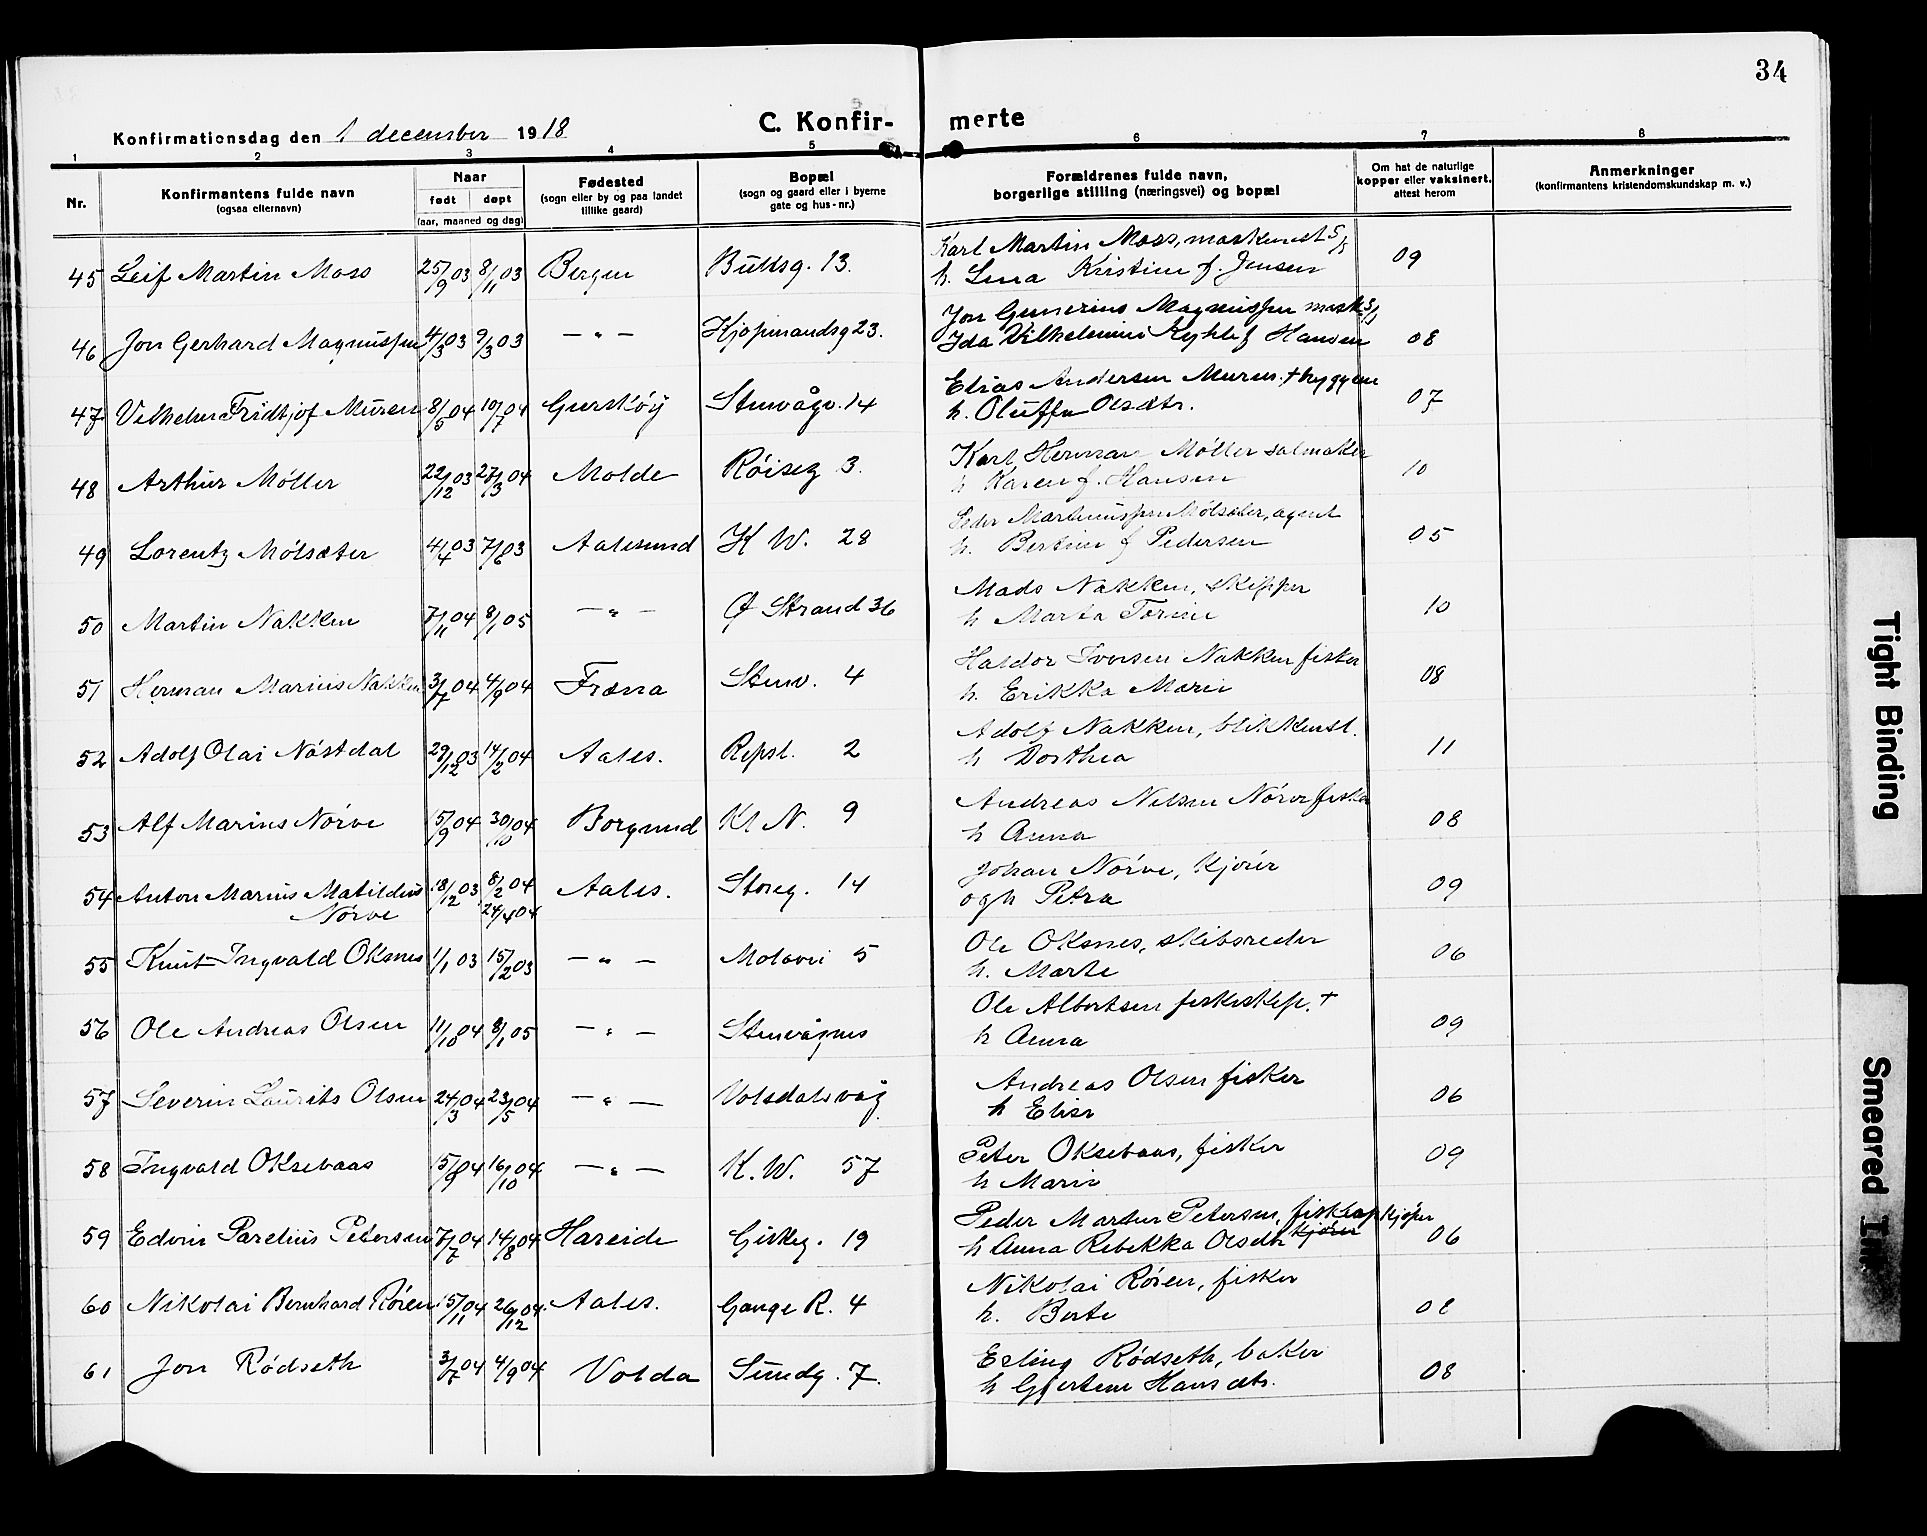 34
Konfirmationsdag den 1 december 1918
C. Konfirmerte
1 2 3 4 5 6 7 8
Nr.
Konfirmantens fulde navn
(ogsaa efternavn)
Naar
født døpt
(aar, maaned og dag)
Fødested
(sogn eller by og paa landet
tillike gaard)
Bopæl
(sogn og gaard eller i byerne
gate og hus-nr.)
Forældrenes fulde navn,
borgerlige stilling (næringsvei) og bopæl
Om hat de naturlige
kopper eller vaksinert,
attest herom
Anmerkninger
(konfirmantens kristendomskundskap m. v.)
45 Leif Martin Moss 25/9 03 8/11 03 Bergen Buktsg. 13. Karl Martin Moss, maskinist
h. Lina Kristine f. Jensen 09
46 Jon Gerhard Magnussen 4/3 03 9/3 03 — „ — Kjøpmandsg 23. Jon Gunerius Magnussen mask
Ida Vilhelmine f Hansen 08
47 Vilhelm Fridtjof Muren 8/5 04 10/7 04 Gurskøy Stenvågv. 14 Elias Andersen Muren. †
h. Oluffa Olsdtr. 07
48 Arthur Möller 22/12 03 27/3 04 Molde Röiseg 3. Karl Herman Möller salmaker
h Karen f. Hansen 10
49 Lorentz Mölsæter 4/4 03 7/6 03 Aalesund K W. 28 Peder Martinussen Mölsæter, agent
h. Bertine f Pedersen 05
50 Martin Nakken 7/11 04 8/1 05 — „ — Ø Strand 36 Mads Nakken, skipper
h Marta Torine 10
51 Herman Marius Nakken 3/7 04 4/9 04 Fræna Stenv. 4 Haldor Iversen Nakken fisker
h. Erikka Marie 08
52 Adolf Olai Nöstdal 29/12 03 14/2 04 Aales. Repsl. 2 Adolf Nakken, blikkensl.
h Dorthea 11
53 Alf Marius Nörve 15/9 04 30/10 04 Borgund Kl N. 9 Andreas Nilsen Nörve fisker
h Anna 08
54 Anton Marius Matildus
Nörve 18/12 03 8/2 04
24/4 04 Aales. Storg. 14 Johan Nörve, kjörer
ogh Petra 09
55 Knut Ingvald Oksnes 1/1 03 15/2 03 — „ — Molovei 5 Ole Oksnes, skibsreder
h. Marte 06
56 Ole Andreas Olsen 11/10 04 8/1 05 — „ — Stenvågnes Ole Albertsen fiskeskip. †
h Anna 09
57 Severin Laurits Olsen 24/3 04 23/5 04 — „ — Volsdalsvåg Andreas Olsen fisker
h Elise 06
58 Ingvald Oksebaas 15/9 04 16/10 04 — „ — K. W. 57 Peter Oksebaas, fisker
h Marie 09
59 Edvin Parelius Petersen 7/7 04 14/8 04 Hareide Giskeg. 19 Peder Martin Petersen, fiskeopkjøper
h Anna Rebekka Olsdtr kjörer 06
60 Nikolai Bernhard Rören 15/11 04 26/12 04 Aales. Gange R. 4 Nikolai Rören, fisker
h. Berte 08
61 Jon Rödseth 3/7 04 4/9 04 Volda Sundg. 7. Erling Rödseth, baker
h Gjertine Hansdtr. 08
Tight Binding
Smeared Ink